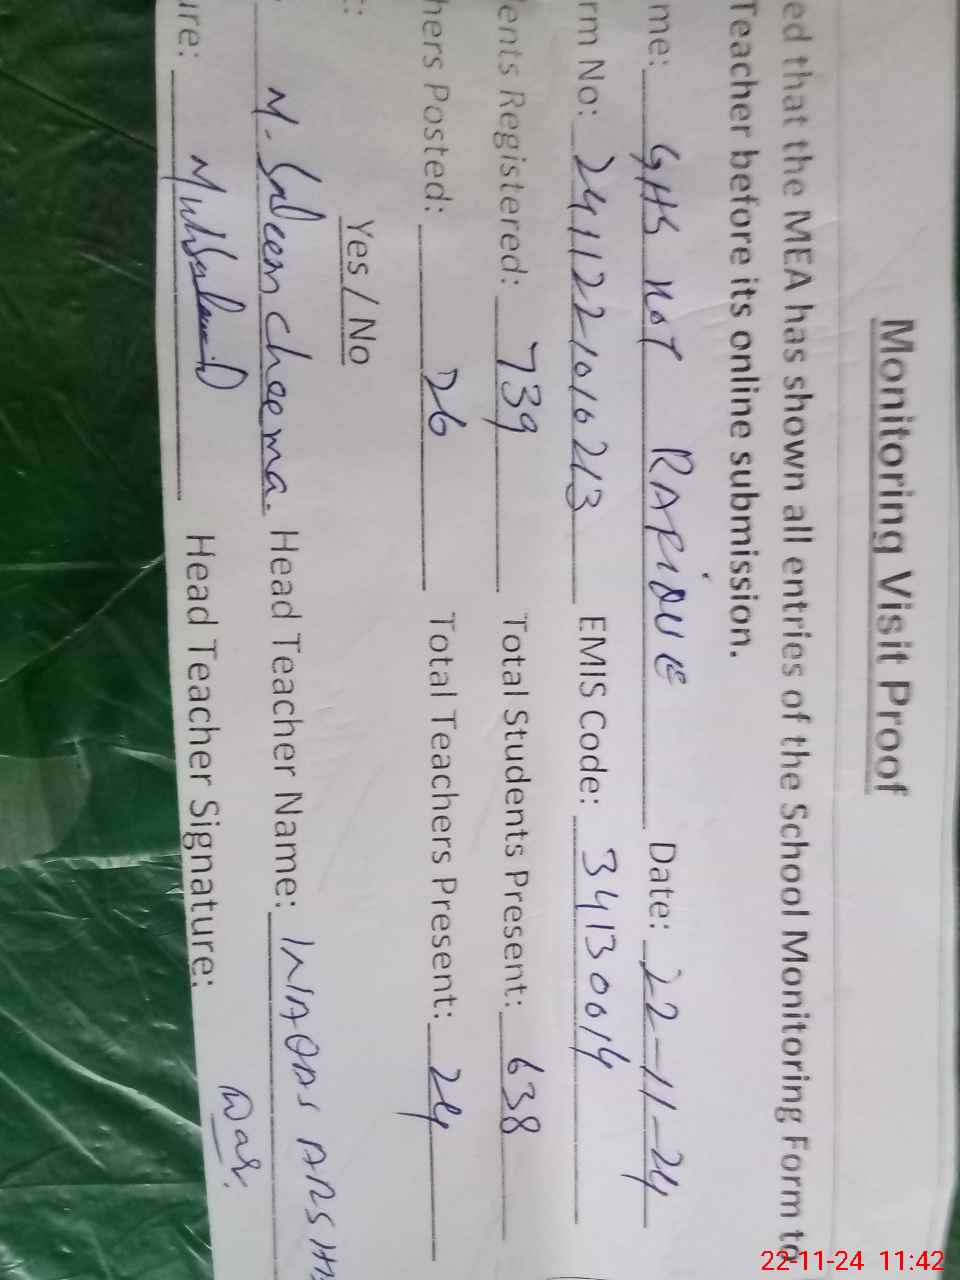 Monitoring Visit Proof
ed that the MEA has shown all entries of the School Monitoring Form to
Teacher before its online submission.
me: GHS Kot RAPiOUE Date: 22-11-24
rm No: 2411221016213 EMIS Code: 34130014
ents Registered: 739 Total Students Present: 638
hers Posted: 26 Total Teachers Present: 24
Yes / No
M. Saleem Cheema. Head Teacher Name: WAQAS ARSH
ure: Head Teacher Signature:
22-11-24 11:42